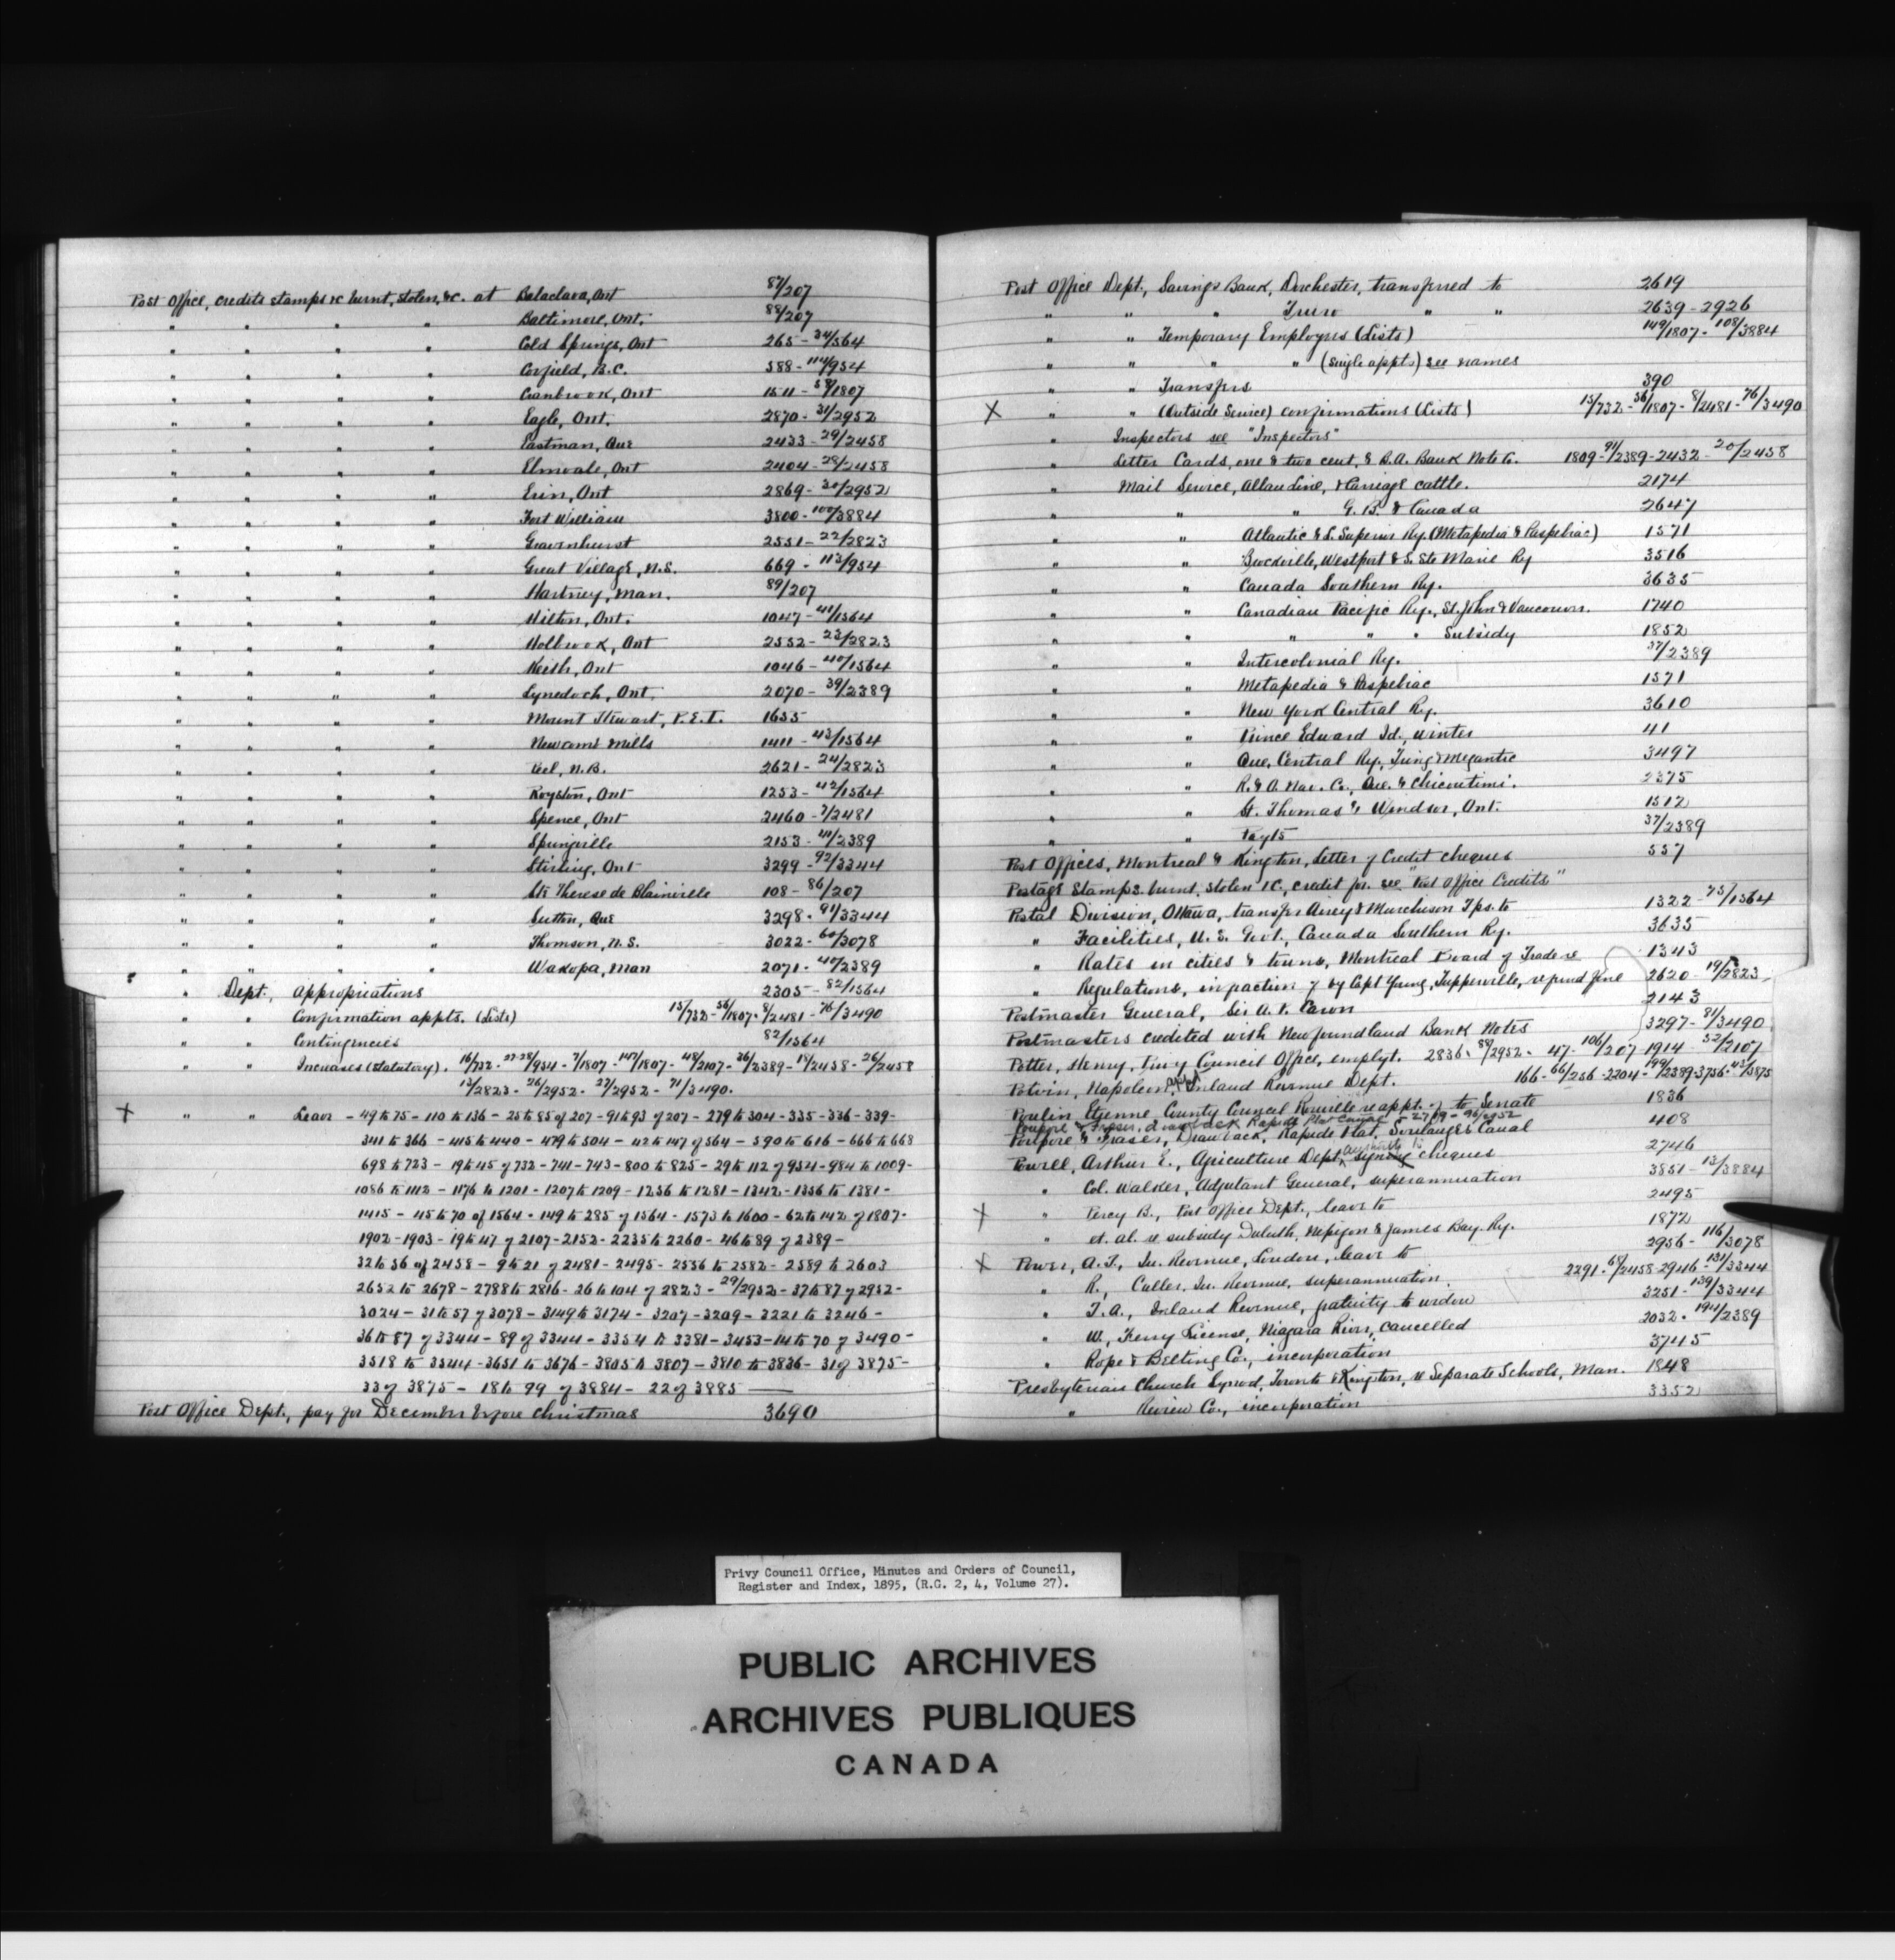 Post Office, credits stamps &c burnt, stolen, &c. at Balaclava, Ont 87/207
" " " " Baltimore, Ont. 88/207
" " " " Cold Springs, Ont 265 - 34/564
" " " " Corfield, B.C. 588 - 114/954
" " " " Cranbrook, Ont 1511 - 58/1807
" " " " Eagle, Ont. 2870 - 31/2952
" " " " Eastman, Que 2433 - 29/2458
" " " " Elmvale, Ont 2404 - 28/2458
" " " " Erin, Ont 2869 - 30/2952
" " " " Fort William 3800 - 100/3884
" " " " Gravenhurst 2551 - 22/2823
" " " " Great Village, N.S. 669 - 113/954
" " " " Hartney, Man. 89/207
" " " " Hilton, Ont. 1047 - 41/1564
" " " " Holbrook, Ont 2552 - 23/2823
" " " " Keith, Ont 1046 - 40/1564
" " " " Lynedoch, Ont. 2070 - 39/2389
" " " " Mount Stewart, P.E.I. 1655
" " " " Newcomb Mills 1411 - 43/1564
" " " " Peel, N.B. 2621 - 24/2823
" " " " Royston, Ont 1253 - 42/1564
" " " " Spence, Ont 2460 - 7/2481
" " " " Springville 2153 - 41/2389
" " " " Stirling, Ont 3299 - 92/3344
" " " " Ste Therese de Blainville 108 - 86/207
" " " " Sutton, Que 3298 - 91/3344
" " " " Thomson, N.S. 3022 - 60/3078
" " " " Wakopa, Man 2071 - 40/2389
" Dept., Appropriations 2305 - 82/1564
" " Confirmation appts. (Lists) 15/732 - 56/1807 - 8/2481 - 76/3490
" " Contingencies 82/1564
" " Increases (Statutory). 16/732 - 27-28/954 - 7/1807 - 147/1807 - 48/2107 - 36/2389 - 18/2458 - 26/2458
13/2823 - 26/2952 - 27/2952 - 71/3490.
X " " Leave - 49 to 75 - 110 to 136 - 25 to 85 of 207 - 91 to 93 of 207 - 279 to 304 - 335 - 336 - 339 -
341 to 366 - 415 to 440 - 479 to 504 - 42 to 147 of 564 - 590 to 616 - 666 to 668
698 to 723 - 19 to 45 of 732 - 741 - 743 - 800 to 825 - 29 to 112 of 954 - 984 to 1009 -
1086 to 1112 - 1176 to 1201 - 1207 to 1209 - 1256 to 1281 - 1342 - 1356 to 1381 -
1415 - 45 to 70 of 1564 - 149 to 285 of 1564 - 1573 to 1600 - 62 to 142 of 1807 -
1902 - 1903 - 19 to 47 of 2107 - 2152 - 2235 to 2260 - 46 to 89 of 2389 -
32 to 56 of 2458 - 9 to 21 of 2481 - 2495 - 2556 to 2582 - 2589 to 2603
2652 to 2678 - 2788 to 2816 - 26 to 104 of 2823 - 29/2952 - 37 to 87 of 2952 -
3024 - 31 to 57 of 3078 - 3149 to 3174 - 3207 - 3209 - 3221 to 3246 -
36 to 87 of 3344 - 89 of 3344 - 3354 to 3381 - 3453 - 14 to 70 of 3490 -
3518 to 3544 - 3651 to 3676 - 3805 to 3807 - 3810 to 3836 - 31 of 3875 -
33 of 3875 - 18 to 99 of 3884 - 22 of 3885
Post Office Dept., pay for December before Christmas 3690
Post Office Dept., Savings Bank, Dorchester, transferred to 2619
" " " Truro " " 2639 - 2926
" " Temporary Employees (Lists) 149/1807 - 108/3884
" " " " (single appts) see names
" " Transfers 390
X " " (Outside Service) confirmations (Lists) 15/732 - 56/1807 - 8/2481 - 76/3490
" Inspectors see "Inspectors"
" Letter Cards, one & two cent, & B.A. Bank Note Co. 1809 - 91/2389 - 2432 - 20/2458
" Mail Service, Allan Line, & carriage cattle. 2174
" " " G.B. & Canada 2647
" " Atlantic & L. Superior Ry. (Metapedia & Paspebiac) 1571
" " Brockville, Westport & S. Ste Marie Ry 3516
" " Canada Southern Ry. 3635
" " Canadian Pacific Ry., St. John & Vancouver. 1740
" " " " " Subsidy 1852
" " Intercolonial Ry. 37/2389
" " Metapedia & Paspebiac 1571
" " New York Central Ry. 3610
" " Prince Edward Id., winter 41
" " Que. Central Ry., Tring & Megantic 3497
" " R. & O. Nav. Co., Que. & Chicoutimi. 2375
" " St. Thomas & Windsor, Ont. 1512
" " Payts 37/2389
Post Offices, Montreal & Kingston, Letter of Credit cheques 557
Postage Stamps burnt, stolen &c, credit for. see "Post Office Credits"
Postal Division, Ottawa, transfer Airey & Murchison Tps. to 1322 - 75/1564
" Facilities, U.S. Govt., Canada Southern Ry. 3635
" Rates in cities & towns, Montreal Board of Trade re 1343
" Regulations, infraction of by Capt Young, Tupperville, refund fine 2620 - 19/2823
Postmaster General, Sir A. P. Caron 2143
Postmasters credited with Newfoundland Bank Notes 3297 - 81/3490
Potter, Henry, Privy Council Office, emplyt. 2836 - 88/2952 - 47 - 106/207 - 1914 - 52/2107
Potvin, Napoleon, Inland Revenue Dept. 166 - 66/256 - 2204 - 199/2389 - 3756 - 43/3875
Poulin Etienne, County Council Rouville re appt. of to Senate 1836
Poupore & Fraser, drawback Rapide Plat Canal - 2719 - 96/2952
Poupore & Fraser, Drawback, Rapide Plat, Soulanges Canal 408
Powell, Arthur E., Agriculture Dept, authority to signing cheques 2746
" Col. Walker, Adjutant General, superannuation 3851 - 13/3884
X " Percy B., Post Office Dept., leave to 2495
" et. al. re subsidy Duluth, Nepigon & James Bay Ry. 1872
X Power, A. F., In. Revenue, London, leave to 2956 - 116/3078
" R., Culler, In. Revenue, superannuation. 2291 - 68/2458 - 2946 - 131/3344
" T. A., Inland Revenue, gratuity to widow 3251 - 139/3344
" W., Ferry License, Niagara River, cancelled 2032 - 194/2389
" Rope & Belting Co., incorporation 3745
Presbyterian Church Synod, Toronto & Kingston, re Separate Schools, Man. 1848
" Review Co., incorporation 3352
Privy Council Office, Minutes and Orders of Council,
Register and Index, 1895, (R.G. 2, 4, Volume 27).
PUBLIC ARCHIVES
ARCHIVES PUBLIQUES
CANADA